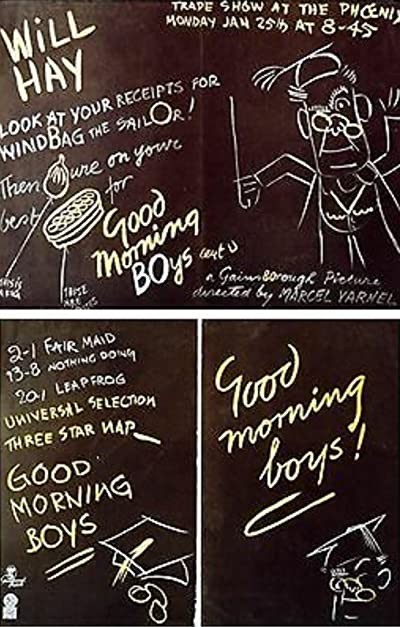 TRADE SHOW AT THE PHOENIX
MONDAY JAN 25th AT 8-45
WILL
HAY
LOOK AT YOUR RECEIPTS FOR
WINDBAG THE SAILOR!
Then
ure on your
best
for
Good
Morning
BOys
cert U
THIS IS
A FIG
THESE
ARE
a Gainsborough Picture
directed by MARCEL VARNEL
2-1 FAIR MAID
13-8 NOTHING DOING
20-1 LEAPFROG
UNIVERSAL SELECTION
THREE STAR NAP
GOOD
MORNING
BOYS
Good
morning
boys!